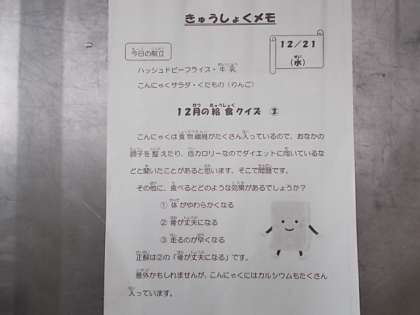 きゅうしょくメモ
今日の献立
12/21
(水)
ハッシュドビーフライス・牛乳
こんにゃくサラダ・くだもの(りんご)
12月の給食クイズ ②
こんにゃくは食物繊維がたくさん入っているので、おなかの
調子を整えたり、低カロリーなのでダイエットに向いているな
どと聞いたことがあると思います。そこで問題です。
その他に、食べるとどのような効果があるでしょうか?
① 体がやわらかくなる
② 骨が丈夫になる
③ 走るのが早くなる
正解は②の「骨が丈夫になる」です。
意外かもしれませんが、こんにゃくにはカルシウムもたくさん
入っています。